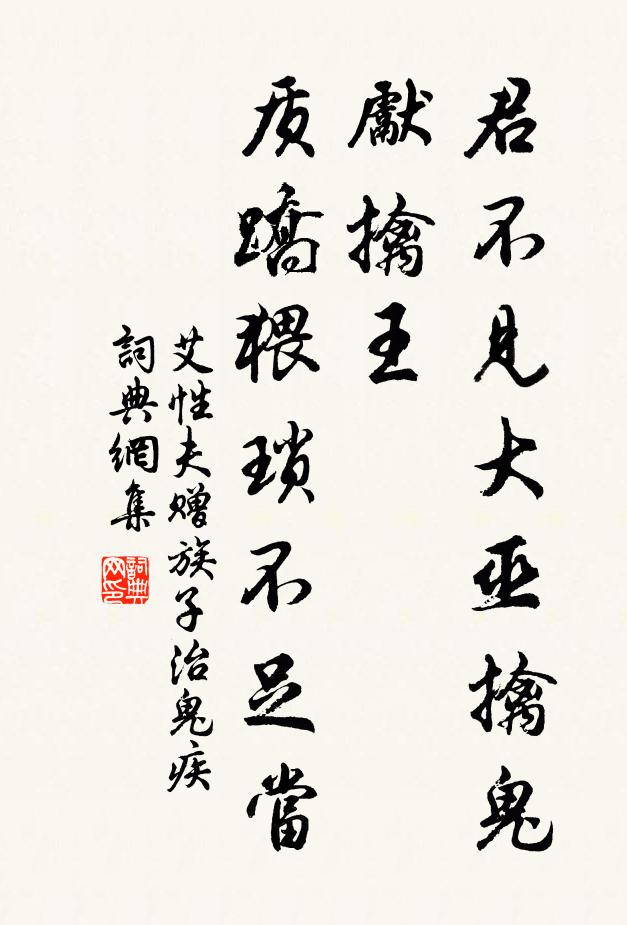 君不見大巫擒鬼
獻擒王
质蹻猥瑣不足當
艾性夫赠族子治鬼疾
詞典網集
詞典网印